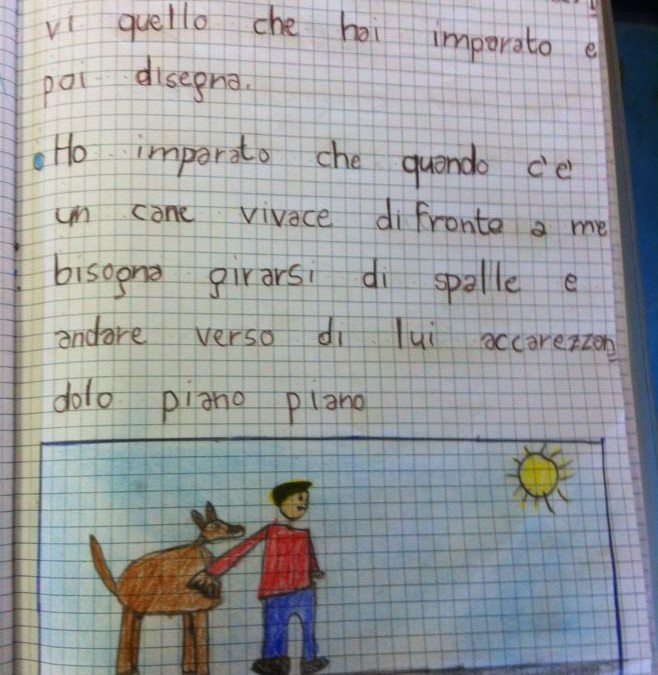 vi quello che hai imparato e
poi disegna.
Ho imparato che quando c'è
un cane vivace di fronte a me
bisogna girarsi di spalle e
andare verso di lui accarezzan
dolo piano piano